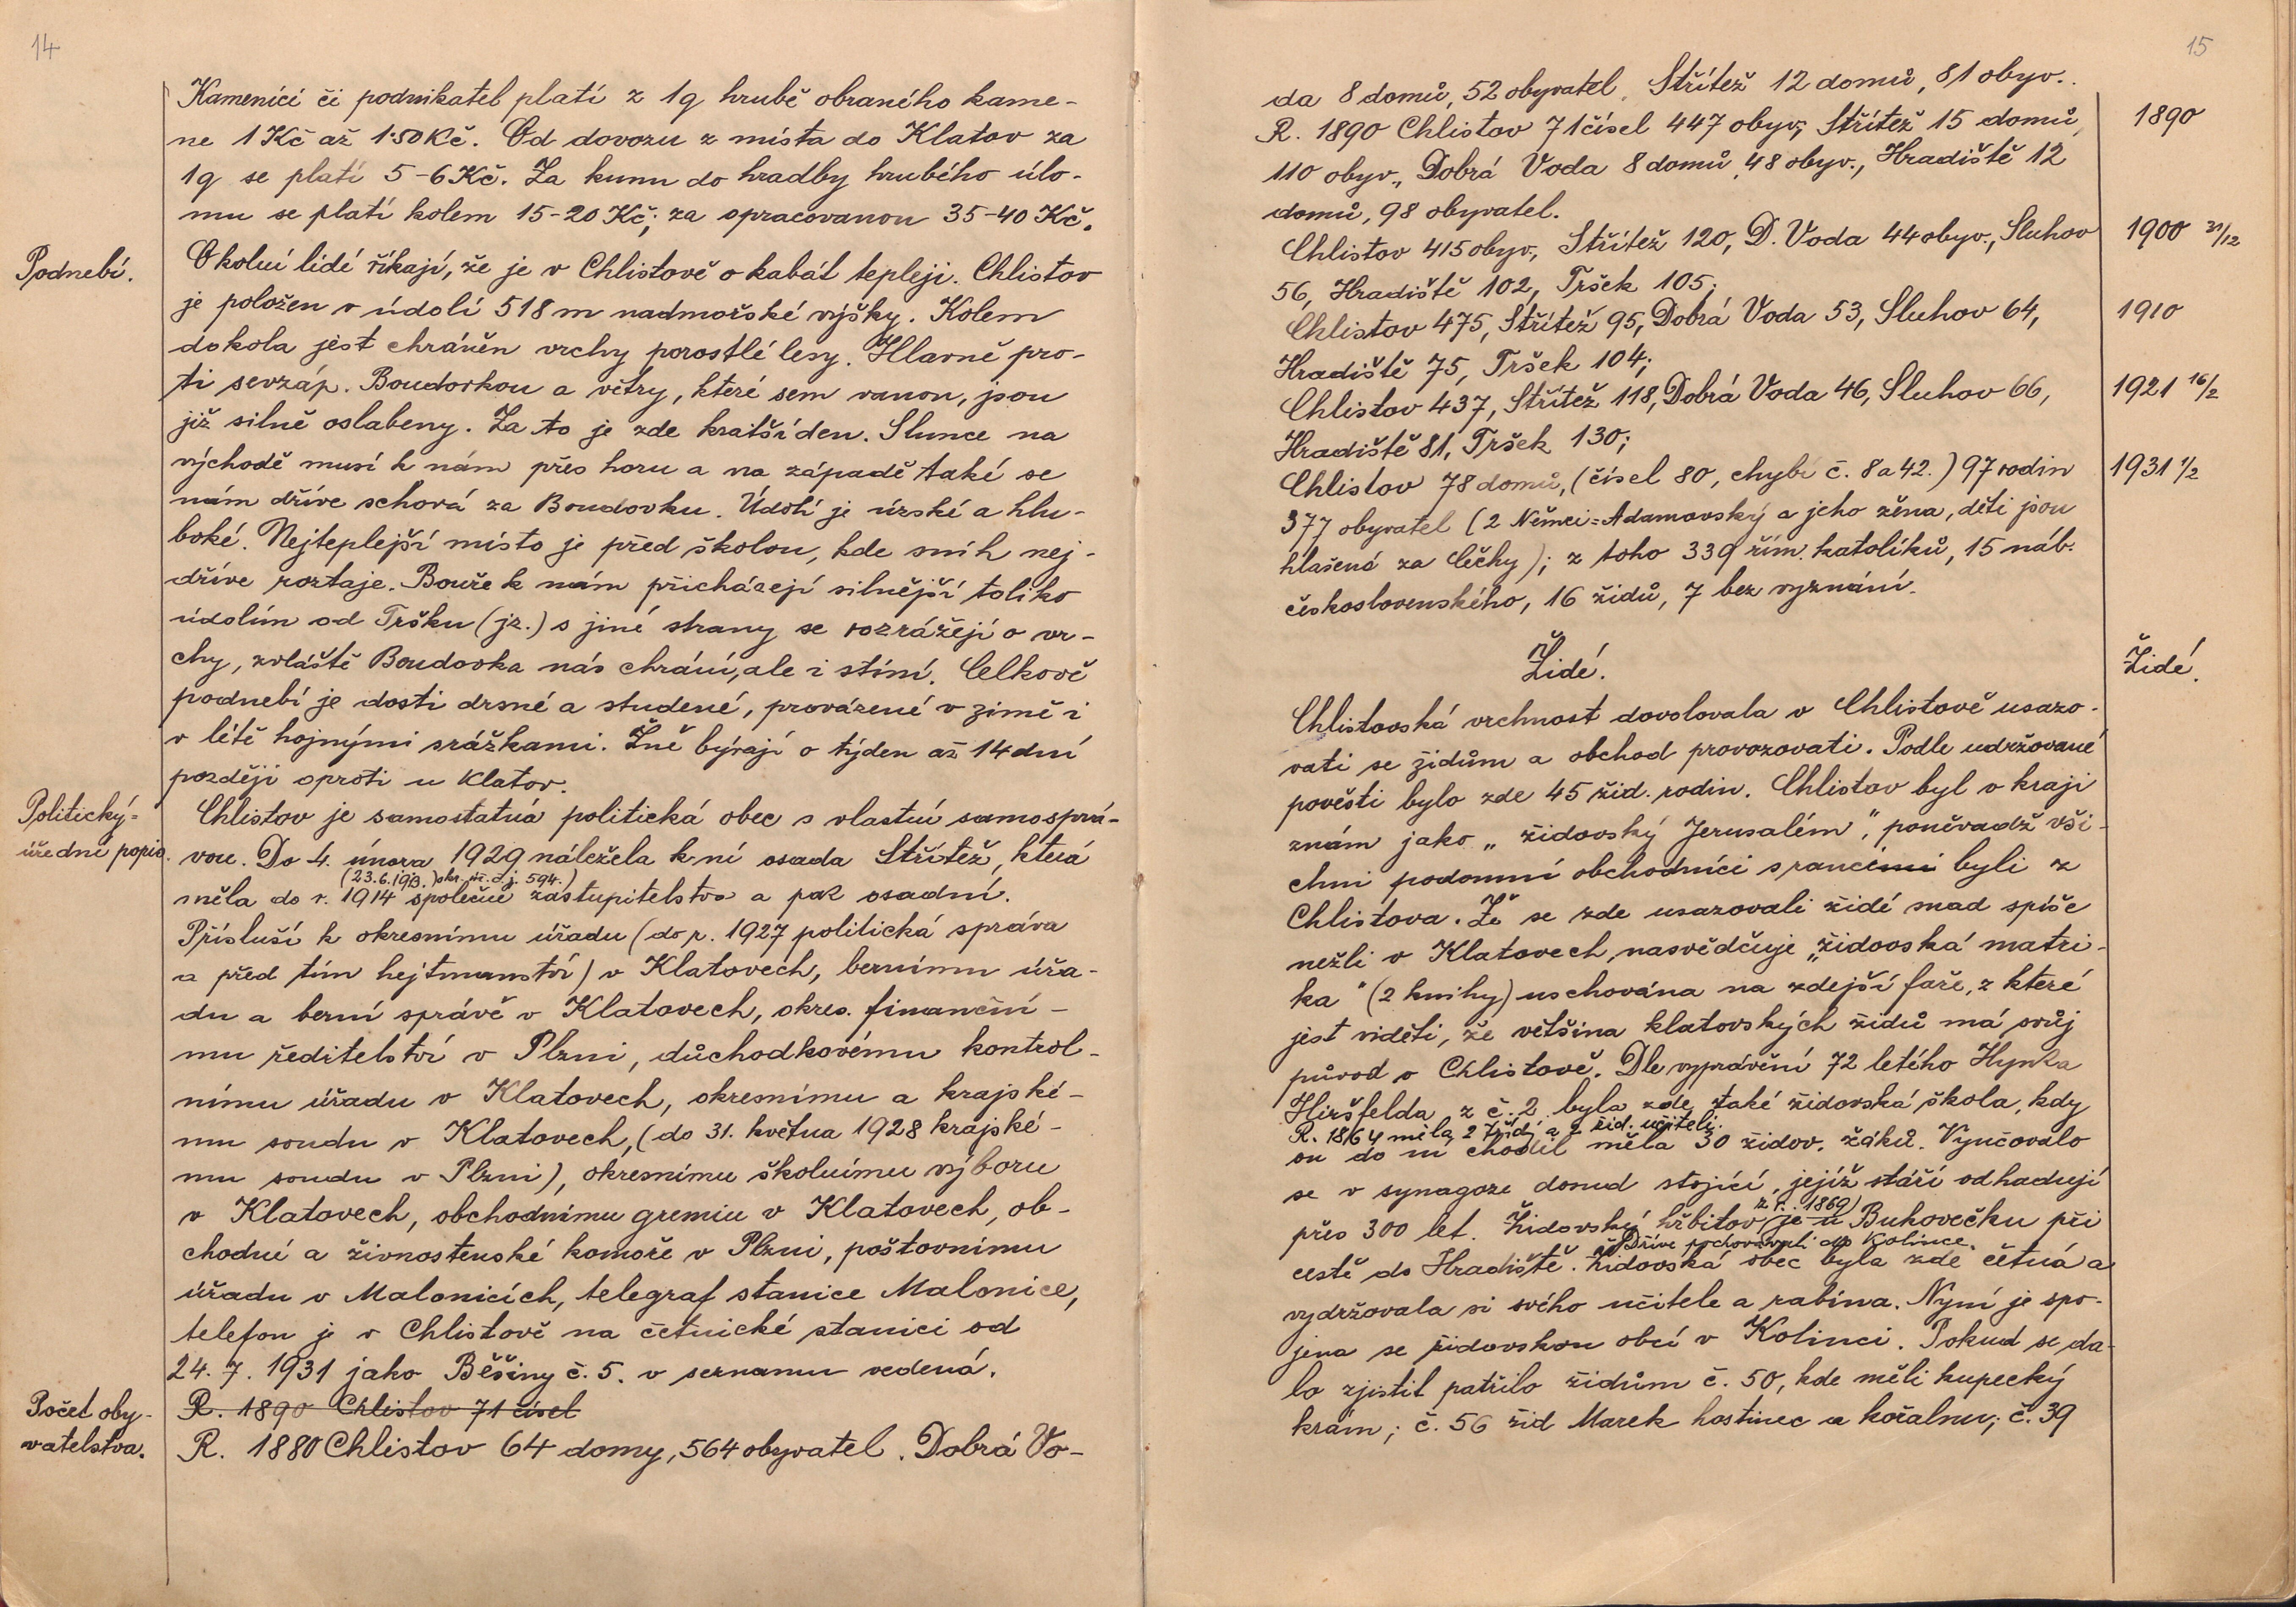 14
Kameníci či podnikatel platí z 1q hrubě obraného kame-
ne 1 Kč až 1·50 Kč. Od dovozu z místa do Klatov za
1q se platí 5-6 Kč. Za kunu do hradby hrubého úlo-
mu se platí kolem 15-20 Kč; za opracovanou 35-40 Kč.
Podnebí.
Okolní lidé říkají, že je v Chlistově o kabát tepleji. Chlistov
je položen v údolí 518 m nadmořské výšky. Kolem
dokola jest chráněn vrchy porostlé lesy. Hlavně pro-
ti sevzáp. Boudovkou a větry, které sem vanou, jsou
již silně oslabeny. Za to je zde kratší den. Slunce na
východě musí k nám přes horu a na západě také se
nám dříve schová za Boudovku. Údolí je úzské a hlu-
boké. Nejteplejší místo je před školou, kde sníh nej-
dříve roztaje. Bouře k nám přicházejí silnější toliko
údolím od Tršku (jz.) s jiné strany se rozrážejí o vr-
chy, zvláště Boudovka nás chrání, ale i stíní. Celkově
podnebí je dosti drsné a studené, provázené v zimě i
v létě hojnými srážkami. Žně bývají o týden až 14 dní
později oproti u Klatov.
Politický-
úřední popis.
Chlistov je samostatná politická obec s vlastní samosprá-
vou. Do 4. února 1929 náležela k ní osada Střítež, která
(23.6.1913. okr. hr. d. j. 594.)
měla do r. 1914 společné zastupitelstvo a pak osadní.
Přísluší k okresnímu úřadu (do r. 1927 politická správa
a před tím hejtmanství) v Klatovech, bernímu úřa-
du a berní správě v Klatovech, okres. finanční-
mu ředitelství v Plzni, důchodkovému kontrol-
nímu úřadu v Klatovech, okresnímu a krajské-
mu soudu v Klatovech, (do 31. května 1928 krajské-
mu soudu v Plzni), okresnímu školnímu výboru
v Klatovech, obchodnímu gremiu v Klatovech, ob-
chodní a živnostenské komoře v Plzni, poštovnímu
úřadu v Malonicích, telegraf stanice Malonice,
telefon je v Chlistově na četnické stanici od
24. 7. 1931 jako Běšiny č. 5. v seznamu vedená.
Počet oby-
vatelstva.
R. 1890 Chlistov 71 čísel
R. 1880 Chlistov 64 domy, 564 obyvatel. Dobrá Vo-
15
da 8 domů, 52 obyvatel. Střítež 12 domů, 81 obyv..
R. 1890 Chlistov 71 čísel 447 obyv; Střítež 15 domů,
1890
110 obyv., Dobrá Voda 8 domů, 48 obyv., Hradiště 12
domů, 98 obyvatel.
Chlistov 415 obyv., Střítež 120, D. Voda 44 obyv., Sluhov
1900 31/12
56, Hradiště 102, Tršek 105;
Chlistov 475, Střítež 95, Dobrá Voda 53, Sluhov 64,
1910
Hradiště 75, Tršek 104;
Chlistov 437, Střítež 118, Dobrá Voda 46, Sluhov 66,
1921 16/2
Hradiště 81, Tršek 130;
Chlistov 78 domů, (čísel 80, chybí č. 8 a 42.) 97 rodin
1931 1/2
377 obyvatel (2 Němci = Adamovský a jeho žena, děti jsou
hlášená za Čěchy); z toho 339 řím. katolíků, 15 náb.
československého, 16 židů, 7 bez vyznání.
Židé.
Židé.
Chlistovská vrchnost dovolovala v Chlistově usazo-
vati se židům a obchod provozovati. Podle udržované
pověsti bylo zde 45 žid. rodin. Chlistov byl v kraji
znám jako „židovský Jerusalém“, poněvadž vši-
chni podomní obchodníci s rancemi byli z
Chlistova. Že se zde usazovali židé snad spíše
nežli v Klatovech, nasvědčuje „židovská matri-
ka“ (2 knihy) uschována na zdejší faře, z které
jest viděti, že většina klatovských židů má svůj
původ v Chlistově. Dle vyprávění 72 letého Hynka
Hiršfelda z č. 2 byla zde také židovská škola, kdy
R. 1864 měla 2 třídy a 2 žid. učiteli.
on do ní chodil měla 30 židov. žáků. Vyučovalo
se v synagoze dosud stojící, jejíž stáří odhadují
z r. 1869)
přes 300 let. Židovský hřbitov je u Bukovečku při
Dříve pochovávali do Kolince.
cestě do Hradiště. Židovská obec byla zde četná a
vydržovala si svého učitele a rabína. Nyní je spo-
jena se židovskou obcí v Kolinci. Pokud se da-
lo zjistit patřilo židům č. 50, kde měli kupecký
krám; č. 56 žid Marek hostinec a kořalnu; č. 39